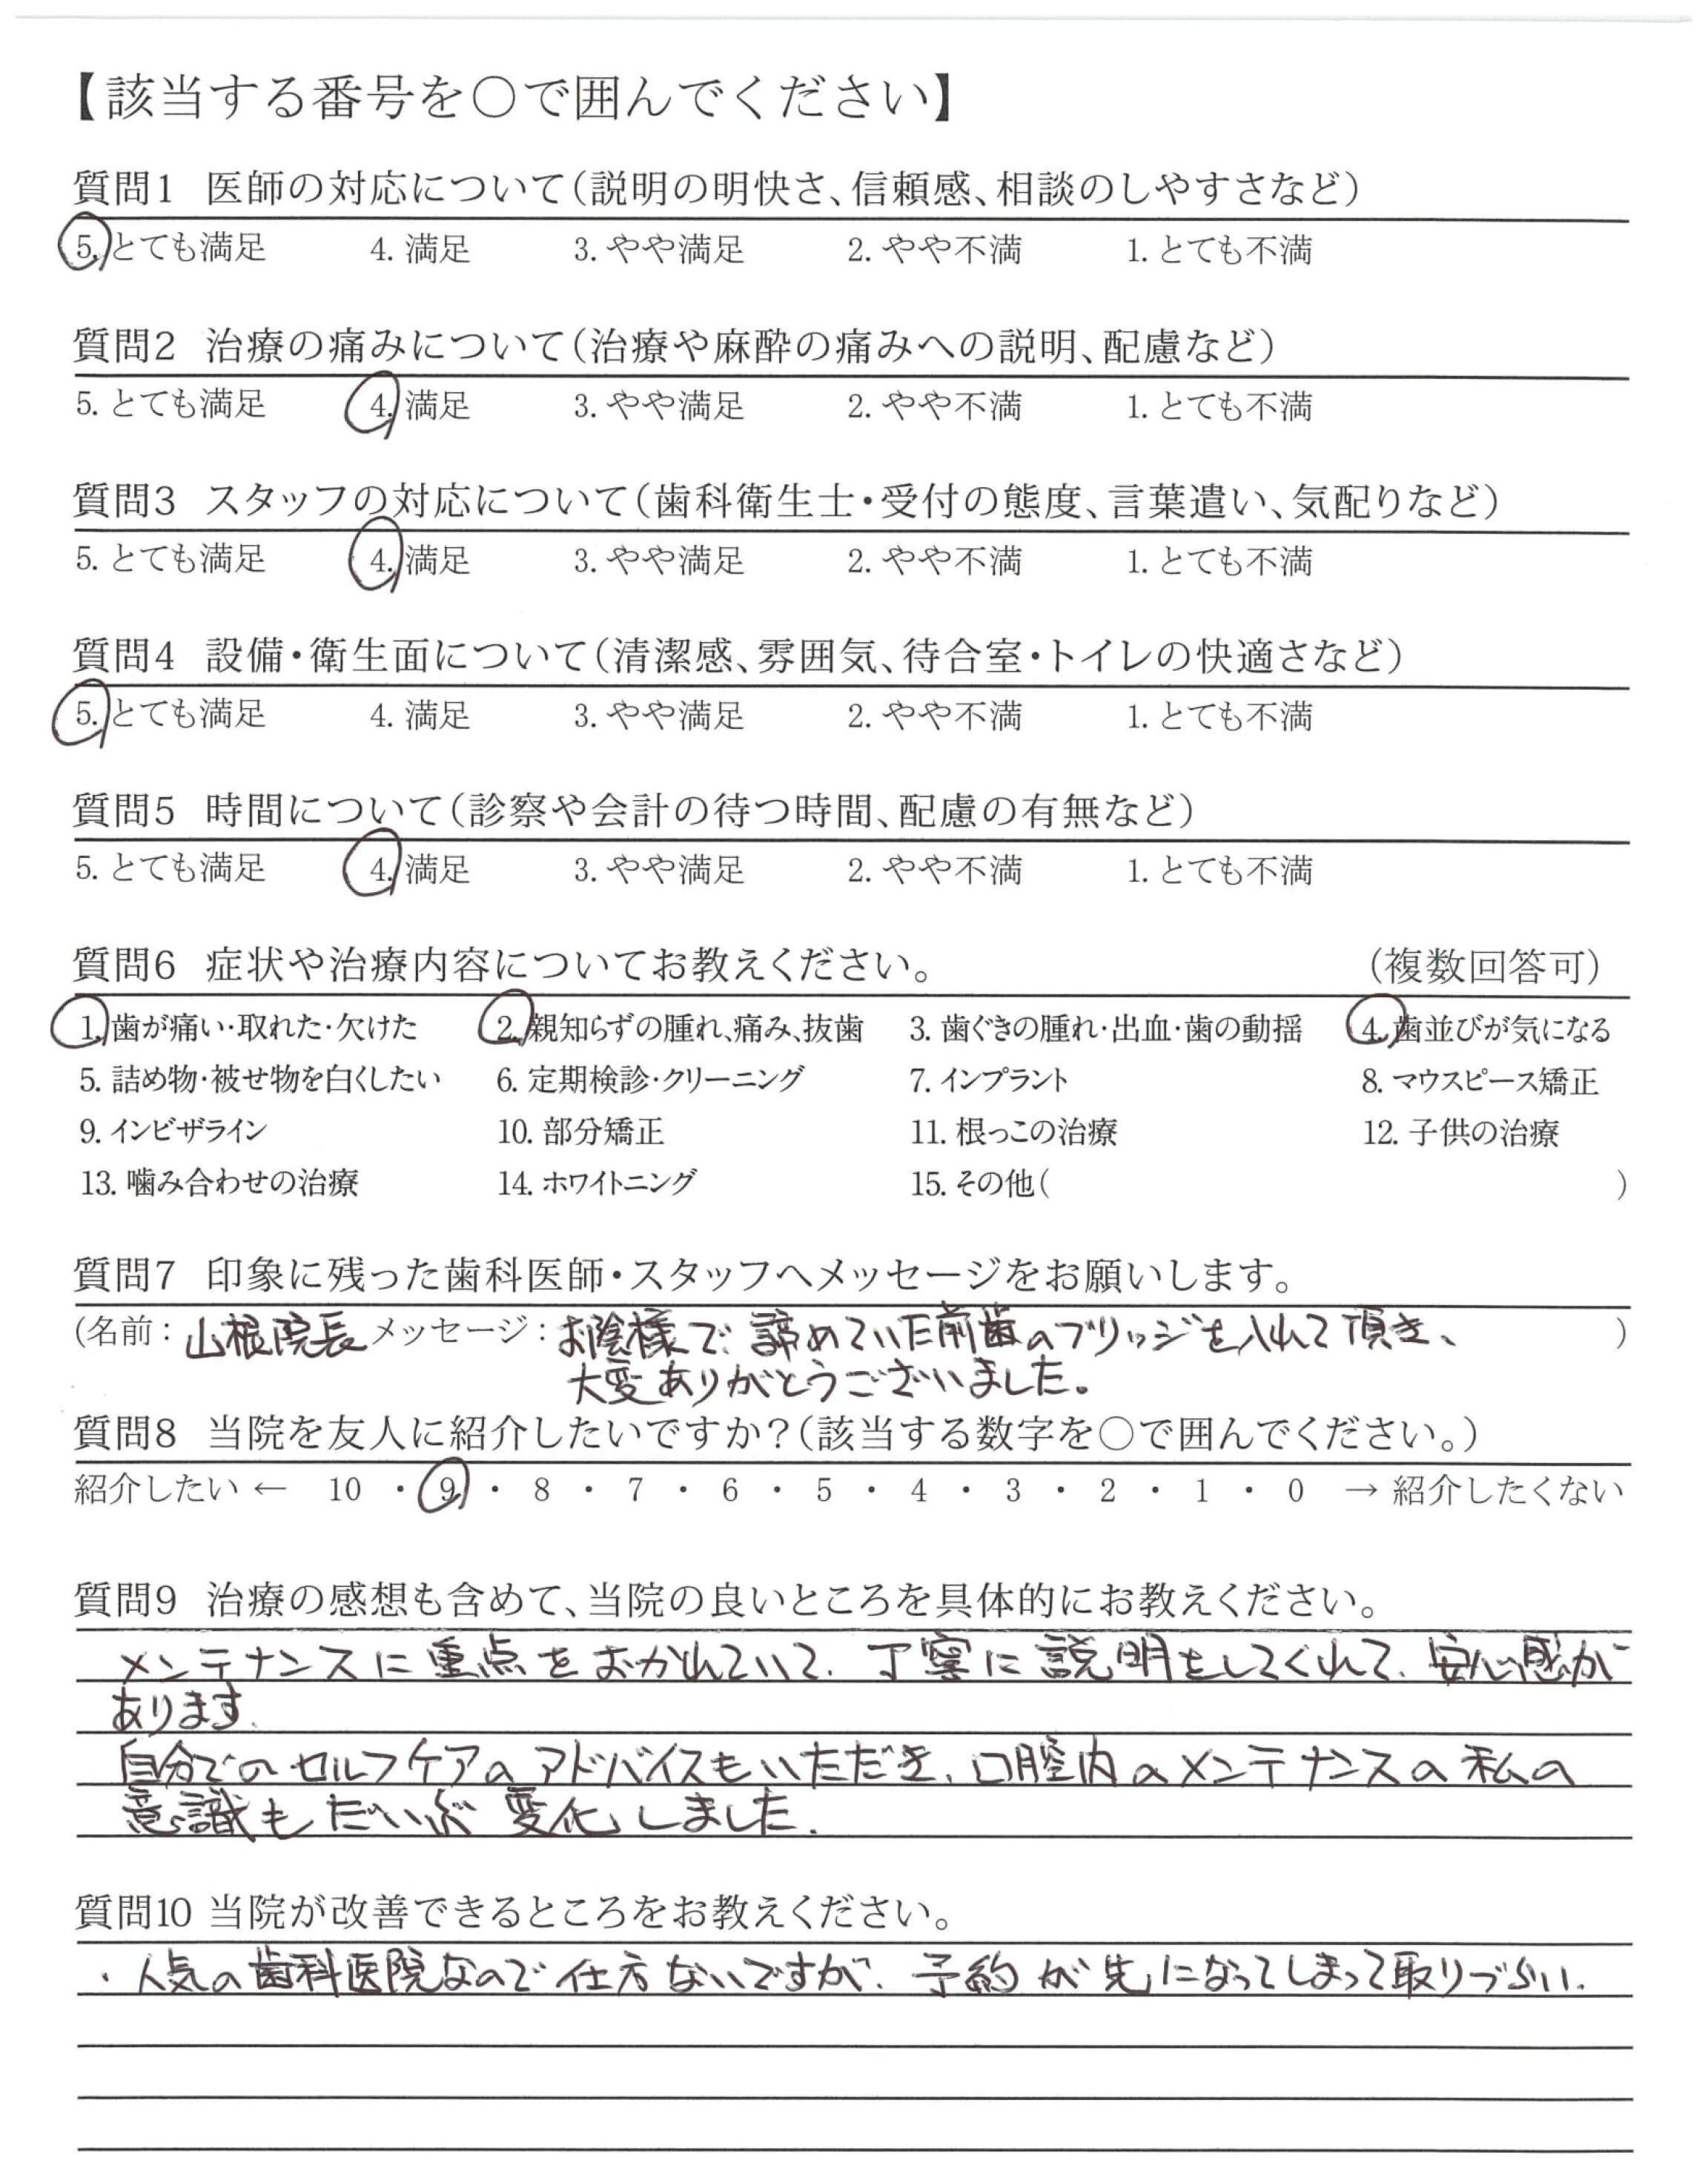 【該当する番号を○で囲んでください】
質問1 医師の対応について(説明の明快さ、信頼感、相談のしやすさなど)
5. とても満足 4. 満足 3. やや満足 2. やや不満 1. とても不満
質問2 治療の痛みについて(治療や麻酔の痛みへの説明、配慮など)
5. とても満足 4. 満足 3. やや満足 2. やや不満 1. とても不満
質問3 スタッフの対応について(歯科衛生士・受付の態度、言葉遣い、気配りなど)
5. とても満足 4. 満足 3. やや満足 2. やや不満 1. とても不満
質問4 設備・衛生面について(清潔感、雰囲気、待合室・トイレの快適さなど)
5. とても満足 4. 満足 3. やや満足 2. やや不満 1. とても不満
質問5 時間について(診察や会計の待つ時間、配慮の有無など)
5. とても満足 4. 満足 3. やや満足 2. やや不満 1. とても不満
質問6 症状や治療内容についてお教えください。 (複数回答可)
1. 歯が痛い・取れた・欠けた 2. 親知らずの腫れ、痛み、抜歯 3. 歯ぐきの腫れ・出血・歯の動揺 4. 歯並びが気になる
5. 詰め物・被せ物を白くしたい 6. 定期検診・クリーニング 7. インプラント 8. マウスピース矯正
9. インビザライン 10. 部分矯正 11. 根っこの治療 12. 子供の治療
13. 噛み合わせの治療 14. ホワイトニング 15. その他( )
質問7 印象に残った歯科医師・スタッフへメッセージをお願いします。
(名前:山根院長 メッセージ:お陰様で、諦めていた前歯のブリッジを入れて頂き、 )
大変ありがとうございました。
質問8 当院を友人に紹介したいですか?(該当する数字を○で囲んでください。)
紹介したい ← 10 ・ 9 ・ 8 ・ 7 ・ 6 ・ 5 ・ 4 ・ 3 ・ 2 ・ 1 ・ 0 → 紹介したくない
質問9 治療の感想も含めて、当院の良いところを具体的にお教えください。
メンテナンスに重点をおかれていて、丁寧に説明をしてくれて、安心感が
あります。
自分でのセルフケアのアドバイスもいただき、口腔内のメンテナンスの私の
意識もだいぶ変化しました。
質問10 当院が改善できるところをお教えください。
・人気の歯科医院なので仕方ないですが、予約が先になってしまって取りづらい。